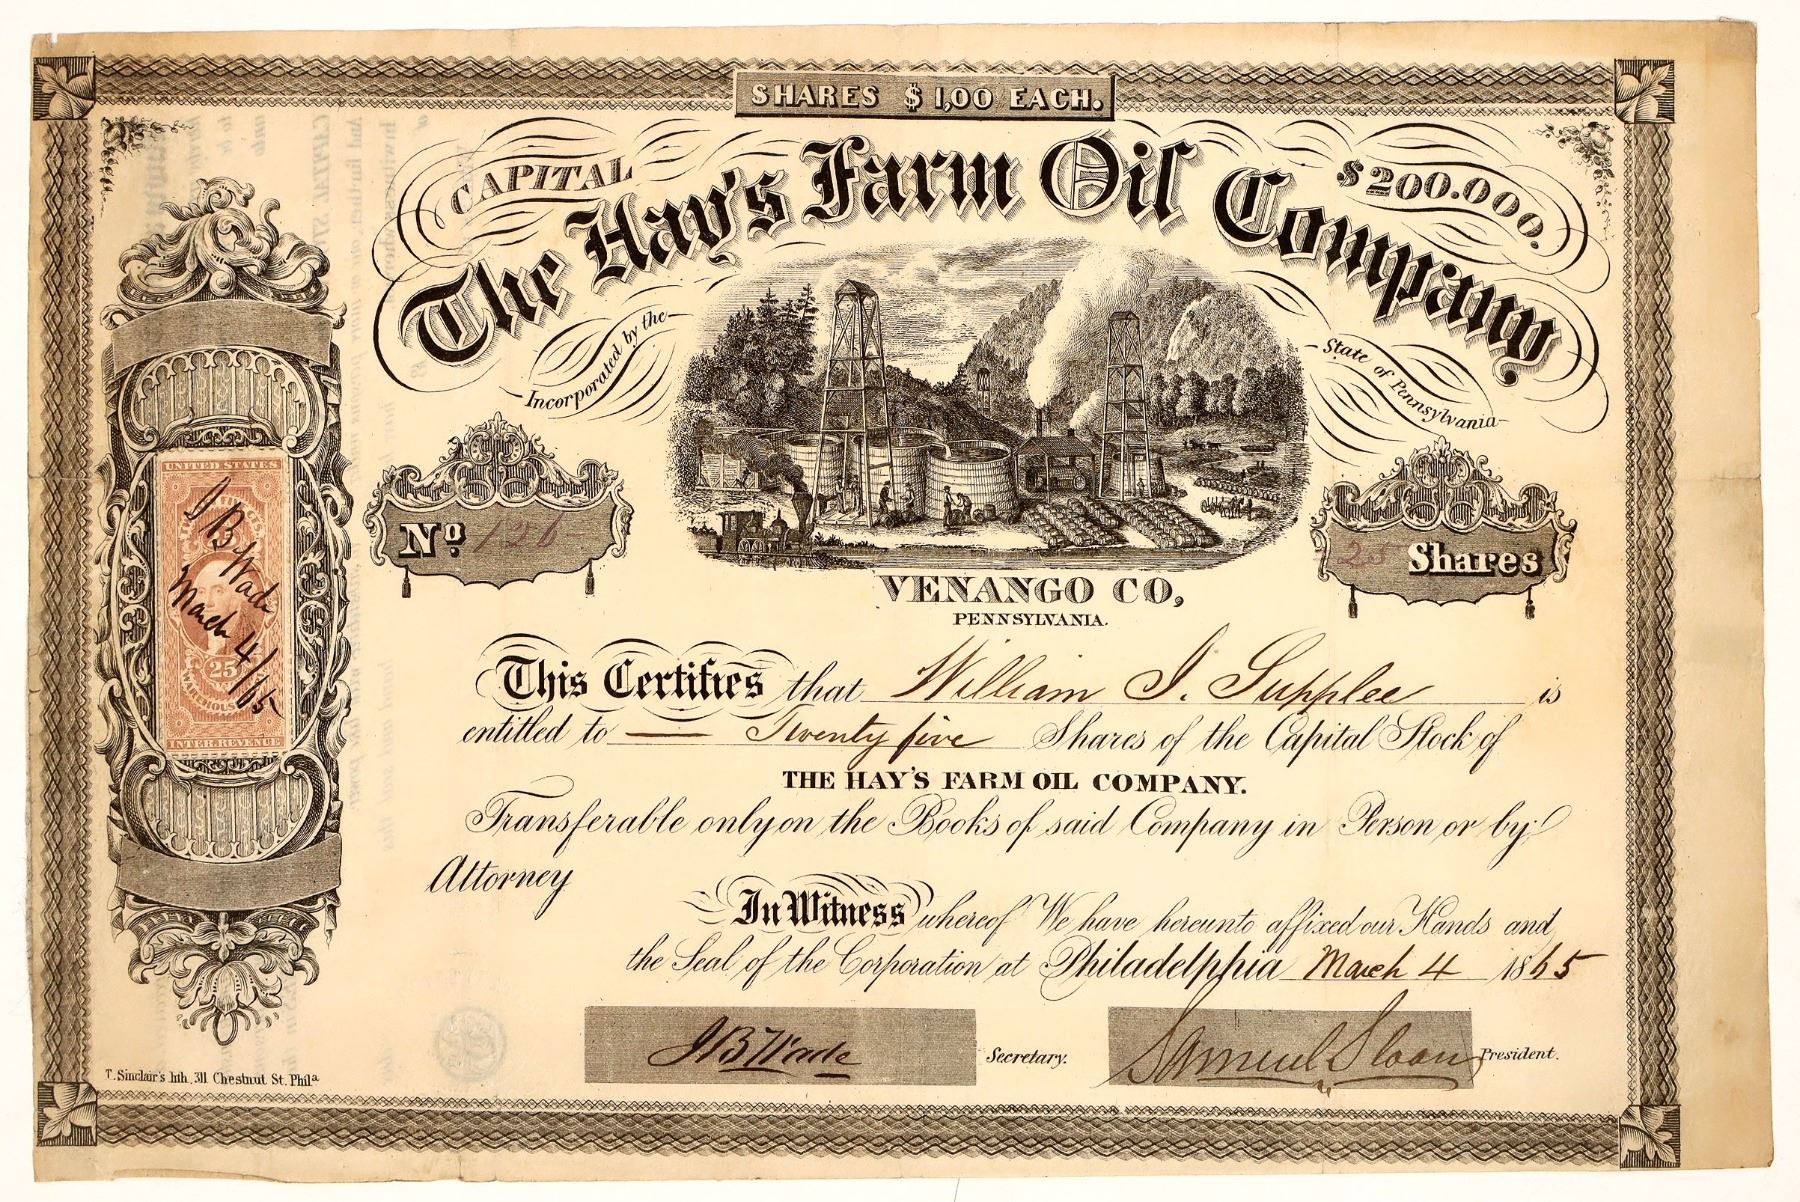 SHARES $ 1,00 EACH.
CAPITAL $200.000.
The Hay's Farm Oil Company
Incorporated by the State of Pennsylvania
No 126
25 Shares
VENANGO CO,
PENNSYLVANIA.
UNITED STATES
25
WAREHOUSE
INTER. REVENUE
J B Wade
March 4/65
This Certifies that William J. Supplee is
entitled to Twenty five Shares of the Capital Stock of
THE HAY'S FARM OIL COMPANY.
Transferable only on the Books of said Company in Person or by
Attorney
In Witness whereof We have hereunto affixed our Hands and
the Seal of the Corporation at Philadelphia March 4 1865
J B Wade Secretary.
Samuel Sloan President.
T. Sinclair's lith, 311 Chestnut St. Phila